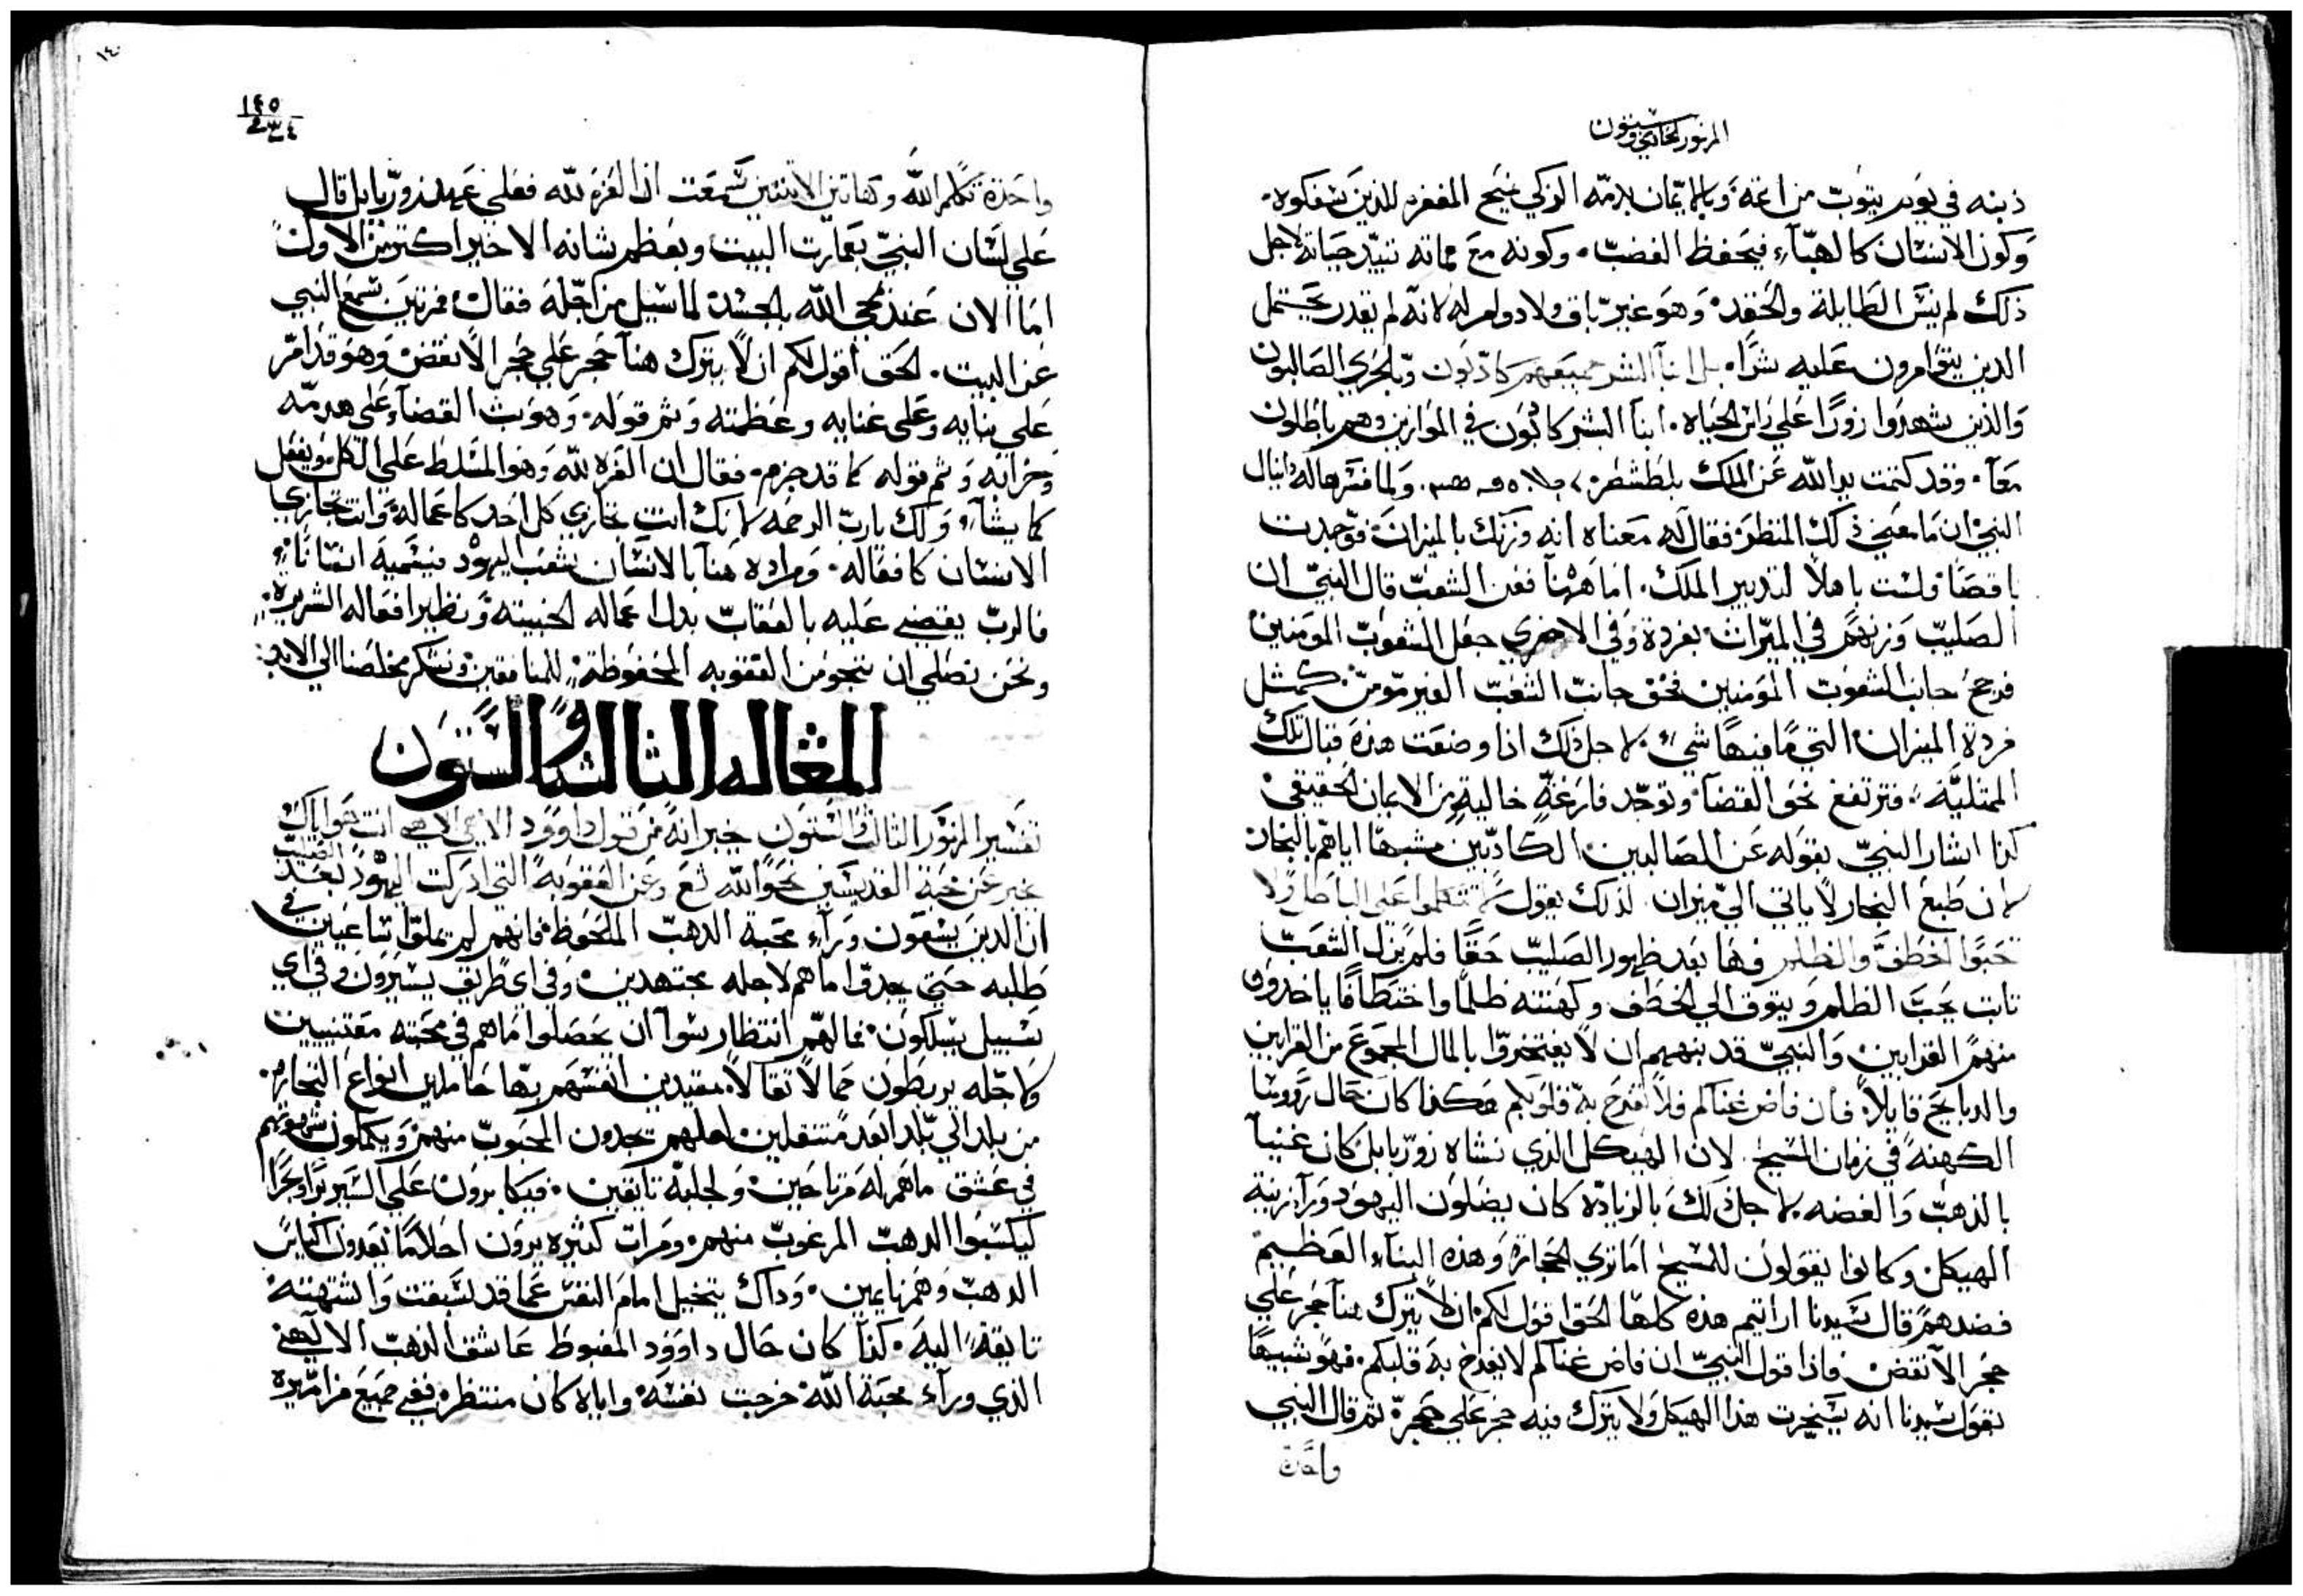 المزمور الحادي وستون
ذنبه في يوم يتوب من اغة وبالايمان بدمه الزكي يمنح المغفره للذين سفكوه.
وكون الانسان كالهبآء فيحفظ الغضب. وكونه مع مماته تبيد حياته لاجل
ذلك لم ينس الطايلة والحقد. وهو غير باق ولا دوام له لانه لم يقدر يحتمل
الذين يتوامرون عليه شراً. بل ابنآ البشر جميعهم كاذبون وبالحري الصالبون
والذين شهدوا زوراً علي راس الحياه. ابنآ البشر كاذبون في الموازين وهم باطلون
معاً. وقد كتبت يد الله عن الملك بلطشطر. ولما فسرها له دانيال
النبي ان ما معني ذلك المنظر فقال له معناه انه وزنك بالميزان فوجدت
ناقصاً ولست باهلاً لتدبير الملك. اما ههنا فعن الشعب قال النبي ان
الصليب وزنهم في الميزان بفردة وفي الاخري جعل الشعوب المومنين
فرجح جانب الشعوب المومنين فخق جانب الشعب الغير مومن. كمثل
فردة الميزان التي ما فيها شي. لاجل ذلك اذا وضعت هذه قبال تلك
الممتلية. فترتفع نحو الفضا وتوجد فارغة خالية من الايمان الحقيقي
كذا اشار النبي بقوله عن الصالبين الكاذبين مشبهاً اياهم بالبخار
لان طبع البخار لا ياتي الي ميزان. لذلك يقول لا تتكلموا علي الباطل ولا
تحبوا الخطف والظلم وها بعد ظهور الصليب حقاً فلم يزل الشعب
ثابت بحب الظلم ويتوق الي الخطف وكهنته ظلماً واختطافاً ياخذون
منهم القرابين والنبي قد ينبههم ان لا يفتخروا بالمال المجموع من القرابين
والدبايح قايلاً. فان فاض غناكم فلا تفرح به قلوبكم هكذا كان حال رووسا
الكهنة في زمان المسيح. لان الهيكل الذي نشاه زوربابل كان غنياً
بالذهب والفضه لاجل ذلك بالزيادة كان يضلون اليهود ورآ زينة
الهيكل وكانوا يقولون للمسيح اما تري الحجارة وهذه البنآء العظيم
فضدهم قال سيدنا ارايتم هذه كلها الحق اقول لكم ان لا يترك هنآ حجر علي
حجر الا نقض. فاذا قول النبي ان فاض غناكم لا يفرح به قلبكم. فهو شبيهاً
بقول سيدنا انه سيخرب هذا الهيكل ولا يترك فيه حجر علي حجر. ثم قال النبي
واحدة
١٤٥
٢٣٤
واحدة تكلم الله وهاتين الاثنتين سمعت ان العزه لله فعلي عهد زوربابل قال
علي لسان النبي بعمارت البيت وبعظم شانه الاخير اكثر من الاول
اما الان عند مجي الله بالجسد لما سيل من اجله فقال. مرتين سمع النبي
عن البيت. الحق اقول لكم ان لا يترك هنآ حجر علي حجر الا نقض. وهو قد امر
علي بنايه وعلي غنايه وعظمته وتم قوله. وهو بث القضآ علي هدمه
وخرابه وتم قوله كما قد جزم. فقال ان العزه لله وهو المسلط علي الكل ويفعل
كما يشآ. ولك يارب الرحمه لانك انت تجازي كل احد كاعماله. وانت تجازي
الانسان كافعاله. ومراده هنآ بالانسان شعب اليهود فيسميه انساناً.
فالرب يقضي عليه بالعقاب بدل اعماله الخبيثه ونظير افعاله الشريره.
ونحن نصلي ان ننجو من العقوبه المحفوظة للمنافقين ونشكر مخلصنا الي الابد
المقاله الثالثه والستون
تفسير المزمور الثالث والستون خبر انه من قول داوود الاهي الاهي انت هو اياك
يخبر عن محبة القديسين نحو الله تع وعن العقوبة التي ادركت اليهود بعد الصليب
ان الذين يسعون ورآء محبة الدهب الملحوظ. فانهم لم يملوا ساعيين في
طلبه حتي يجدوا ما هم لاجله مجتهدين. وفي اي طريق يسيرون وفي اي
سبيل يسلكون. فما لهم انتظار سوا ان يحصلوا ما هم في محبته مفتنيين
ولاجله يربطون حمالا ثقالاً مقيدين انفسهم بها حاملين انواع التجاره.
من بلد الي بلد ابعد منتقلين لعلهم يجدون المحبوب منهم. ويكملون شهوتهم
في عشق ما هم له مرتاحين ولجلبه تايقين. فيكابرون علي السير براً وبحراً
ليكسبوا الدهب المرغوب منهم. ومرات كثيره يرون احلاماً يعدون اكياس
الدهب وهم نايمين. وداك يتخيل امام النفس عما قد سبقت واشتهته
تايقة اليه. كذا كان حال داوود المغبوط عاشق الذهب الالهي
الذي ورآء محبة الله خرجت نفسه واياه كان منتظر. ففي جميع مزاميره